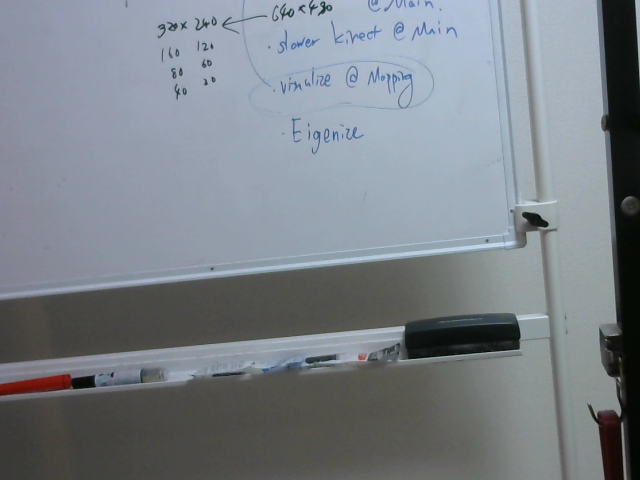 @Main.
320 x 240 ← 640 x 480
160 120
80 60
40 30
· slower kinect @ Main
· visualize @ Mapping
· Eigenize